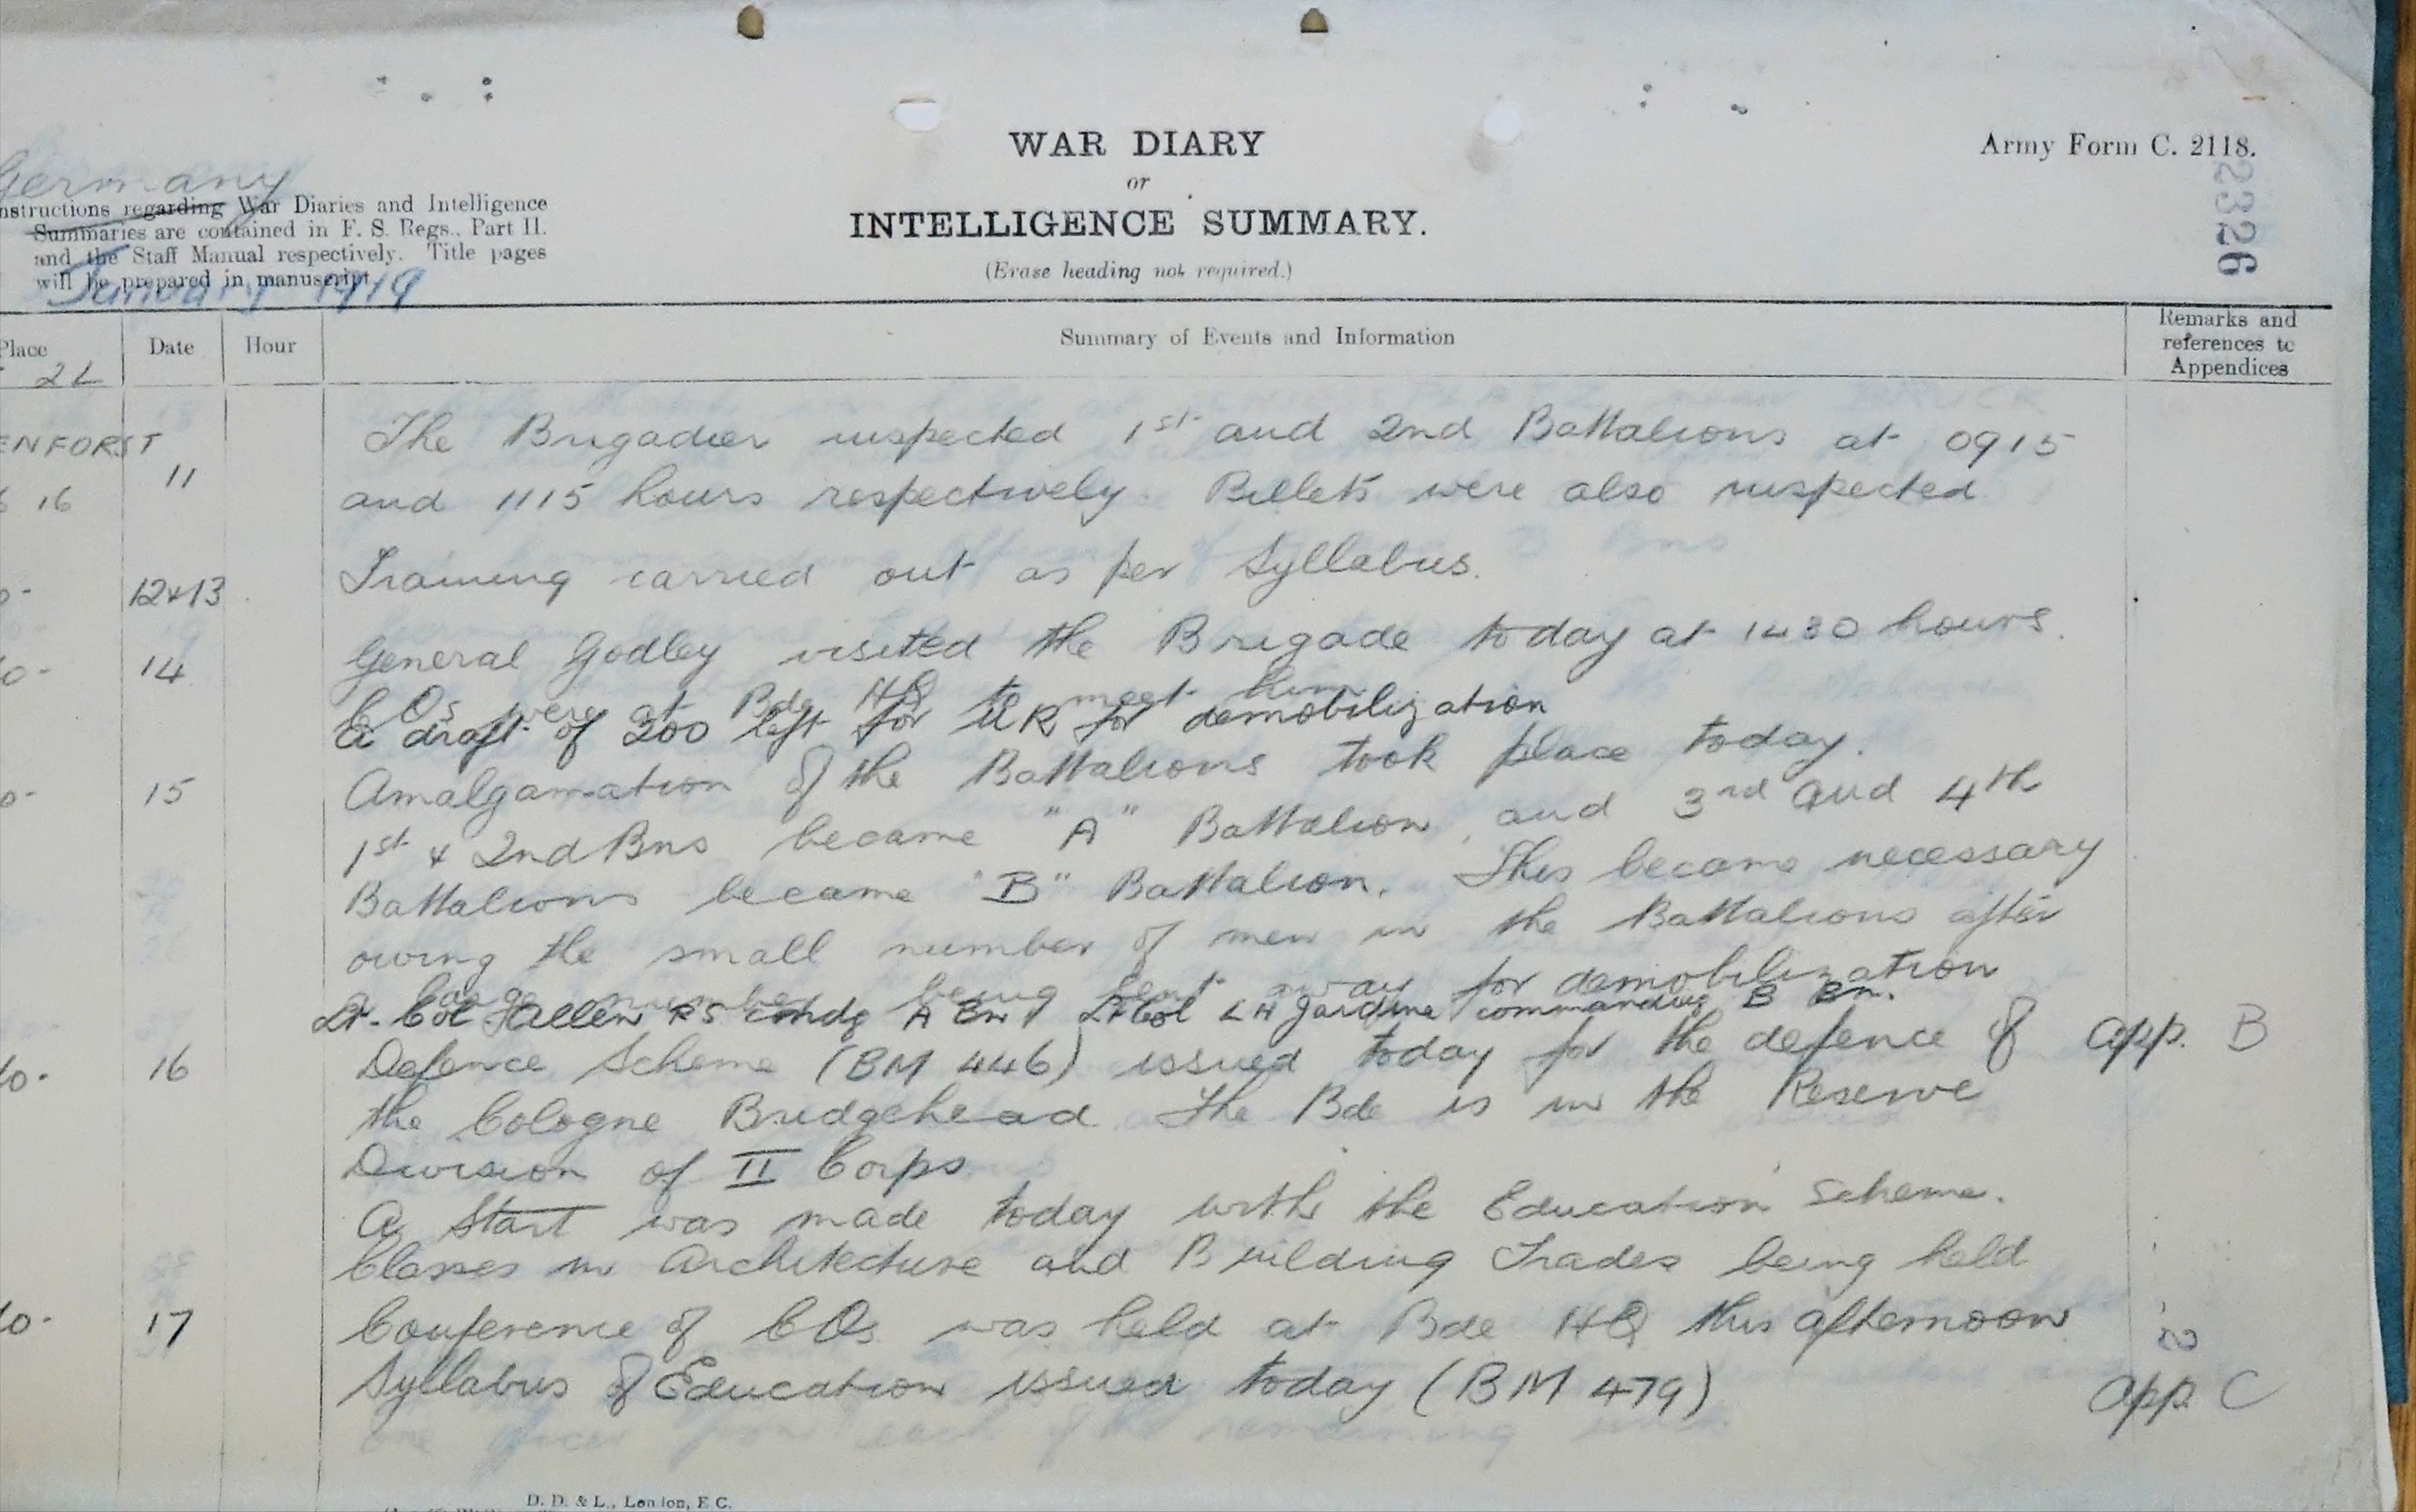 WAR DIARY
or
INTELLIGENCE SUMMARY.
(Erase heading not required.)
Army Form C. 2118.
2326
Germany
nstructions regarding War Diaries and Intelligence
Summaries are contained in F. S. Regs., Part II.
and the Staff Manual respectively. Title pages
will be prepared in manuscript.
January 1919
Place
2L
Date
Hour
Summary of Events and Information
Remarks and
references to
Appendices
ENFORST
16
11
The Brigadier inspected 1st and 2nd Battalions at 0915
and 1115 hours respectively. Billets were also inspected
12&13
Training carried out as per Syllabus.
14
General Godley visited the Brigade today at 1430 hours.
COs were at Bde HQ to meet him.
A draft of 300 left for UK for demobilization
15
Amalgamation of the Battalions took place today.
1st & 2nd Bns became "A" Battalion, and 3rd and 4th
Battalions became "B" Battalion. This became necessary
owing the small number of men in the Battalions after
a large number being sent away for demobilization
Lt. Col Allen RS cmdg A Bn Lt Col LH Jardine commanding B Bn.
do.
16
Defence Scheme (BM 446) issued today for the defence of
app. B
the Cologne Bridgehead. The Bde is in the Reserve
Division of II Corps
A start was made today with the Education Scheme.
Classes in Architecture and Building Trades being held
do.
17
Conference of COs was held at Bde HQ this afternoon
Syllabus of Education issued today (BM 479)
app. C
D. D. & L., London, E.C.